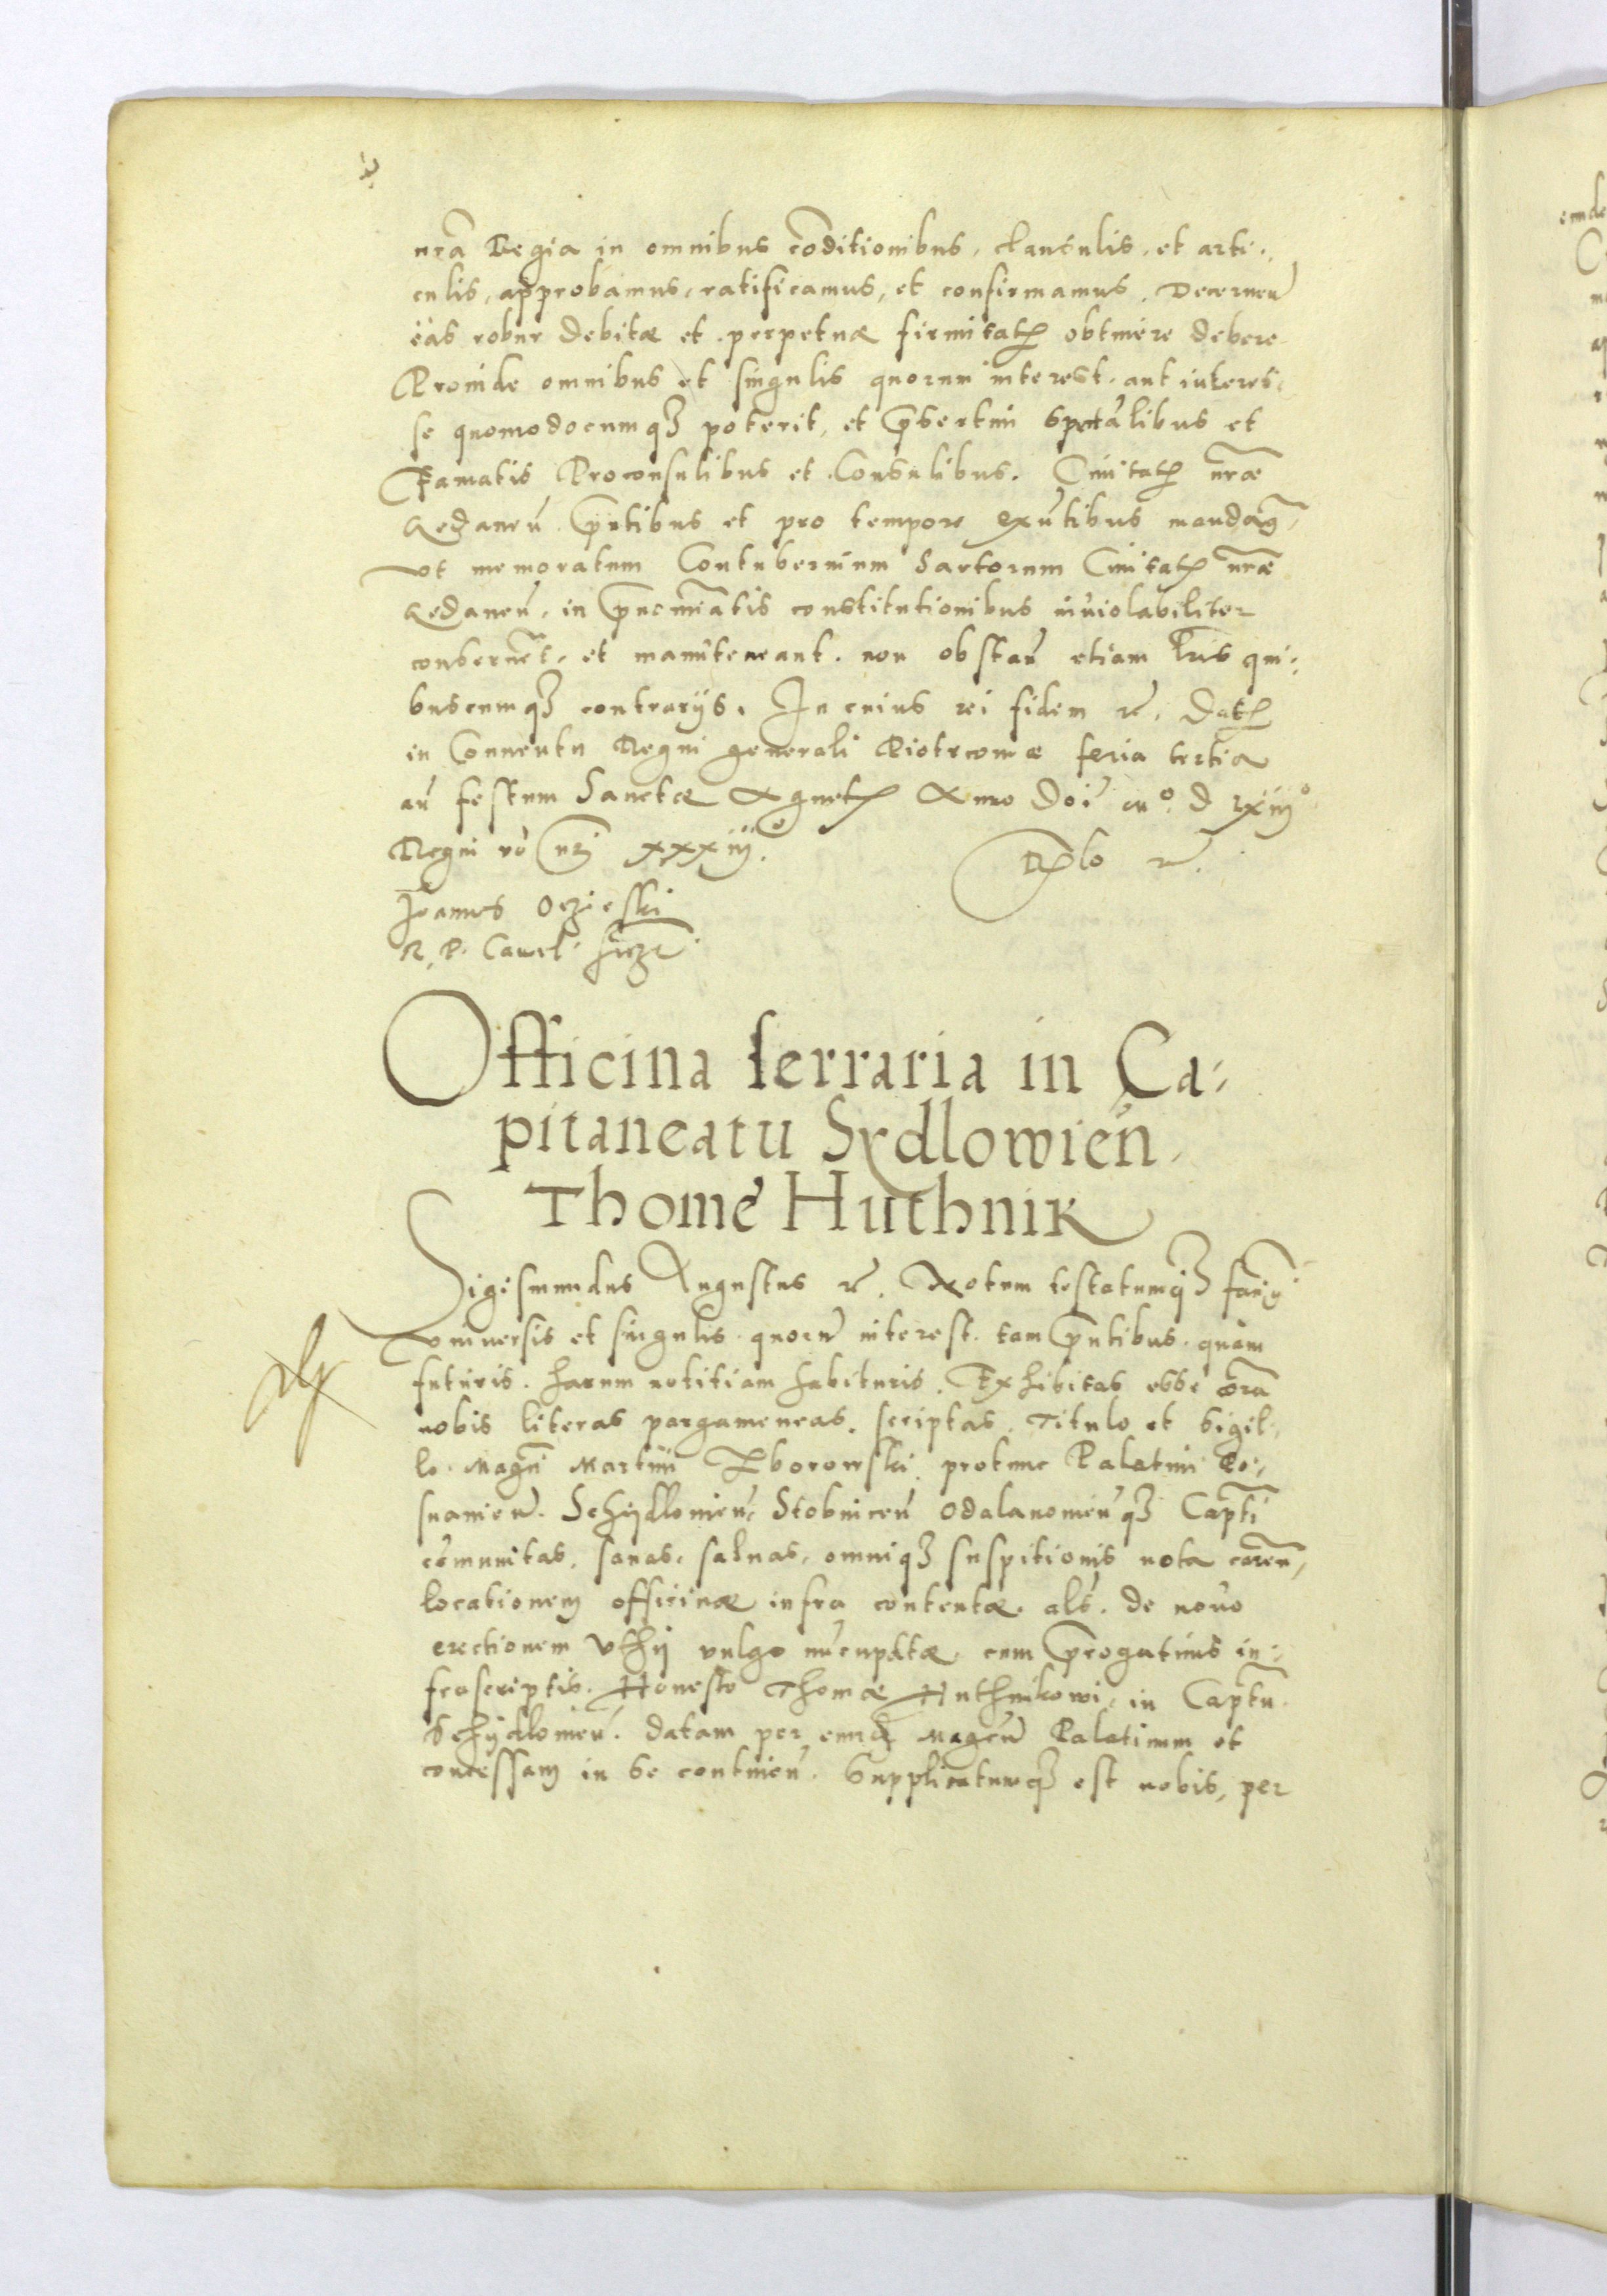 nrã Regia in omnibus cõditionibus, clausulis, et arti-
culis, approbamus, ratificamus, et confirmamus. Decernen̄
eas robur debitæ et perpetuæ firmitatꝭ obtinere debere
Proinde omnibus et singulis quorum interest, aut interes-
se quomodocumqꝫ poterit, et p̄sertim Spectãlibus et
Famatis Proconsulibus et Consulibus. Ciuitatꝭ nr̃æ
Gedanen̄ p̄ntibus et pro tempore exn̄tibus mandam̄9
vt memoratum Contubernium Sartorum Ciuitatꝭ nr̃æ
Gedanen̄, in p̄nominatis constitutionibus inuiolabiliter
conseruẽt, et manuteneant. non obstan̄ etiam l̃ris qui-
buscumqꝫ contrarijs. In cuius rei fidem etc. Datꝭ
in Conuentu Regni generali Piotrcouiæ feria tertia
an̄ festum Sanctæ Agnetꝭ Anno Doī M° D lxiij°
Regni vo nr̃i xxxiij°. Rlõ etc.
Joannes Oczieski
R. P. Cancel. ssꝫt
Officina ferraria in Ca-
pitaneatu Sydlowień
Thome Huthnik
Sigismundus Augustus etc. Notum testatumqꝫ facim9
vniuersis et singulis quorũ interest. tam p̄ntibus quàm
futuris. harum notitiam habituris. Exhibitas esse corã
nobis literas pargameneas. scriptas. Titulo et sigil-
lo Magcī Martini Zborowski protunc Palatini Po-
snanien̄. Schÿdlouien̄, Stobnicen̄ Odalanouien̄qꝫ Capt̃i
cõmunitas. sanas, saluas, omniqꝫ suspitionis nota caren̄,
locationem officinæ infra contentæ, als. de nouo
erectionem vthÿ vulgo nũcupatæ, cum p̄rogatiuis in-
frascriptis. Honesto Thomæ Huthnikowi, in Capt̃u
Schÿdlouien̄. datam per eund. Magcũ Palatinum et
concessam in se continen̄. Supplicatumqꝫ est nobis, per